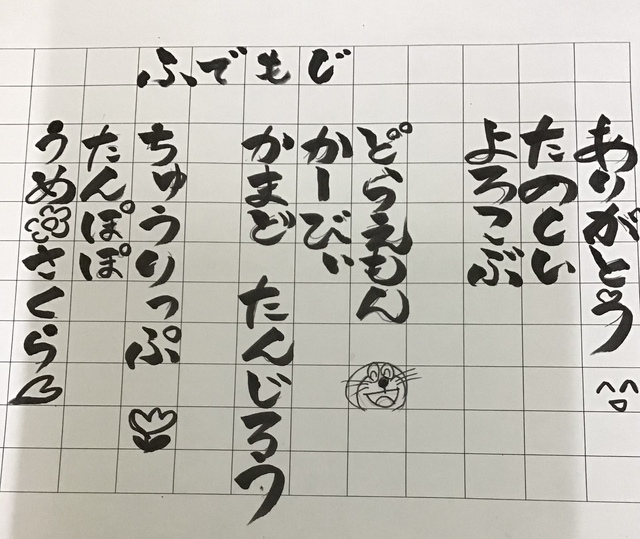 ふでもじ
ありがとう
たのしい
よろこぶ
どらえもん
かーびぃ
かまど たんじろう
ちゅうりっぷ
たんぽぽ
うめ さくら